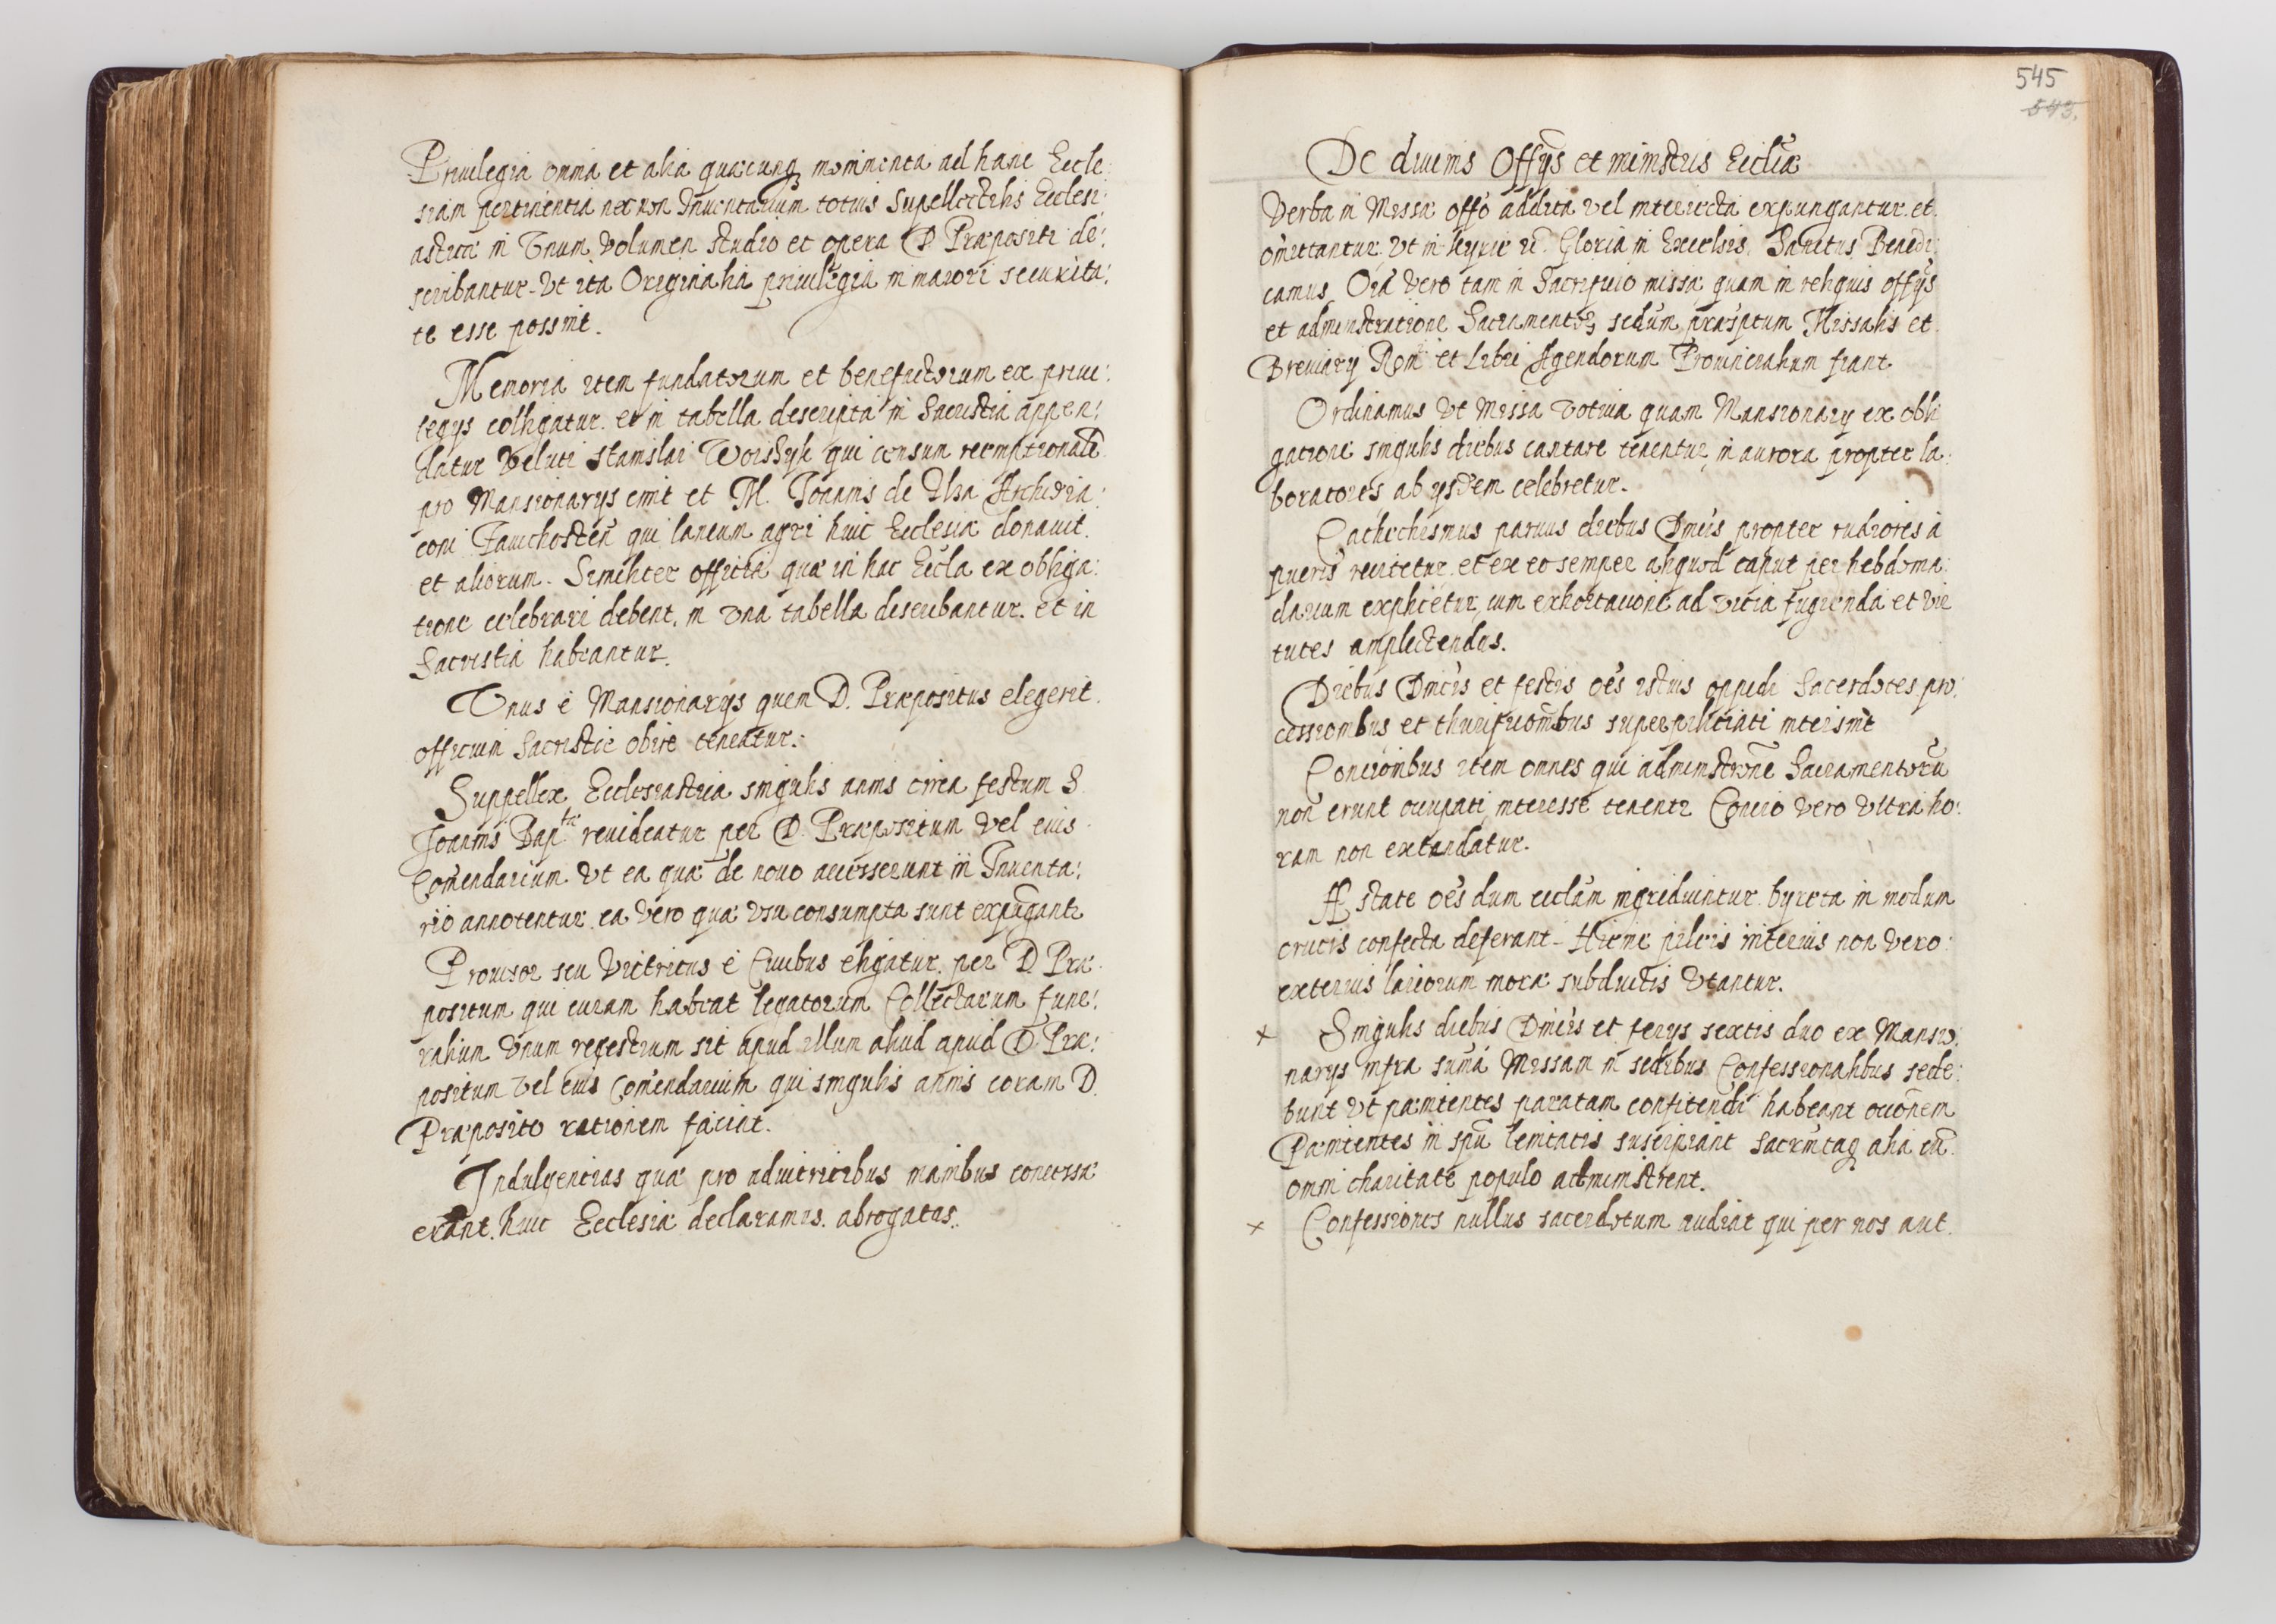 Priuilegia omnia et alia quæcunq; monimenta ad hanc Eccle:
siam pertinentia nec non Inuentarium totius Supellectilis Ecclesi:
asticæ in Vnum Volumen studio et opera D. Præpositi de:
scribantur. Vt ita Originalia priuilegia in maiori securita:
te esse possint.
Memoria item fundatorum et benefactorum ex priui:
legijs colligatur. et in tabella descripta in Sacristia appen:
datur Veluti Stanislai qui censum reemptionalē
pro Mansionarijs emit et M. Joannis de Archidia:
coni qui laneum agri huic Ecclesiæ donauit.
et aliorum. Similiter officia quæ in hac Eccła ex obliga:
tione celebrari debent. in vna tabella describantur. et in
Sacristia habeantur.
Vnus è Mansionarijs quem D. Præpositus elegerit.
officium Sacristæ obire teneatur.
Suppellex Ecclesiastica singulis annis circa festum S.
Joannis Bapttæ reuideatur per D. Præpositum Vel eius
Comendarium. Vt ea quæ de nouo accesserunt in Inuenta:
rio annotentur. ea Vero quæ Vsu consumpta sunt expūgantr
Prouisor seu Vitricus è Ciuibus eligatur. per D. Præ:
positum qui curam habeat legatorum Collectarum fune:
ralium. Vnum regestrum sit apud illum aliud apud D. Præ:
positum vel eius Comendarium qui singulis annis coram D.
Præposito rationem faciat.
Indulgentias quæ pro adiutricibus manibus concessæ
erant. huic Ecclesiæ declaramus. abrogatas.
545
543.
De diuinis Officijs et ministris Eccliæ
Verba in Missæ offo addita vel interiecta expungantur. et
omittantur. Vt in Kyrie Gloria in Excelsis. Sanctus, Benedi:
camus. Oīa Vero tam in Sacrificio missæ quam in reliquis officijs
et administratione Sacramentor; secdum præscriptum Missalis et
Breuiarij Rom: et Libri Agendorum Prouincialium fiant.
Ordinamus Vt Missa votiua quam Mansionarij ex obli
gatione singulis diebus cantare tenentur, in aurora propter la:
boratores ab ijsdem celebretur.
Cathechismus paruus diebus Dnicis propter rudiores à
pueris recitetur. et ex eo semper aliquod caput per hebdoma:
darium explicetur, cum exhortatione ad vitia fugienda et vir
tutes amplectendas.
Diebus Dnicis et festis oēs istius oppidi Sacerdotes pro:
cessionibus et thurificationibus superpelliciati intersint
Concionibus item omnes qui administrone Sacramentorū
non erunt occupati, interesse tenentr. Concio Vero Vltra ho:
ram non extendatur.
Æstate oēs dum eccłam ingrediuntur. byreta in modum
crucis confecta deferant. Hieme pileis interius non Vero:
exterius laicorum more subductis Vtantur.
× Singulis diebus Dnicis et ferijs sextis duo ex Mansio:
narijs infra sumā Missam in sedibus Confessionalibus sede:
bunt Vt pænitentes paratam confitendi habeant occonem
Pænitentes in spū lenitatis suscipiant sacrmtaq; alia cū
omni charitate populo administrent.
× Confessiones nullus sacerdotum audiat qui per nos aut.